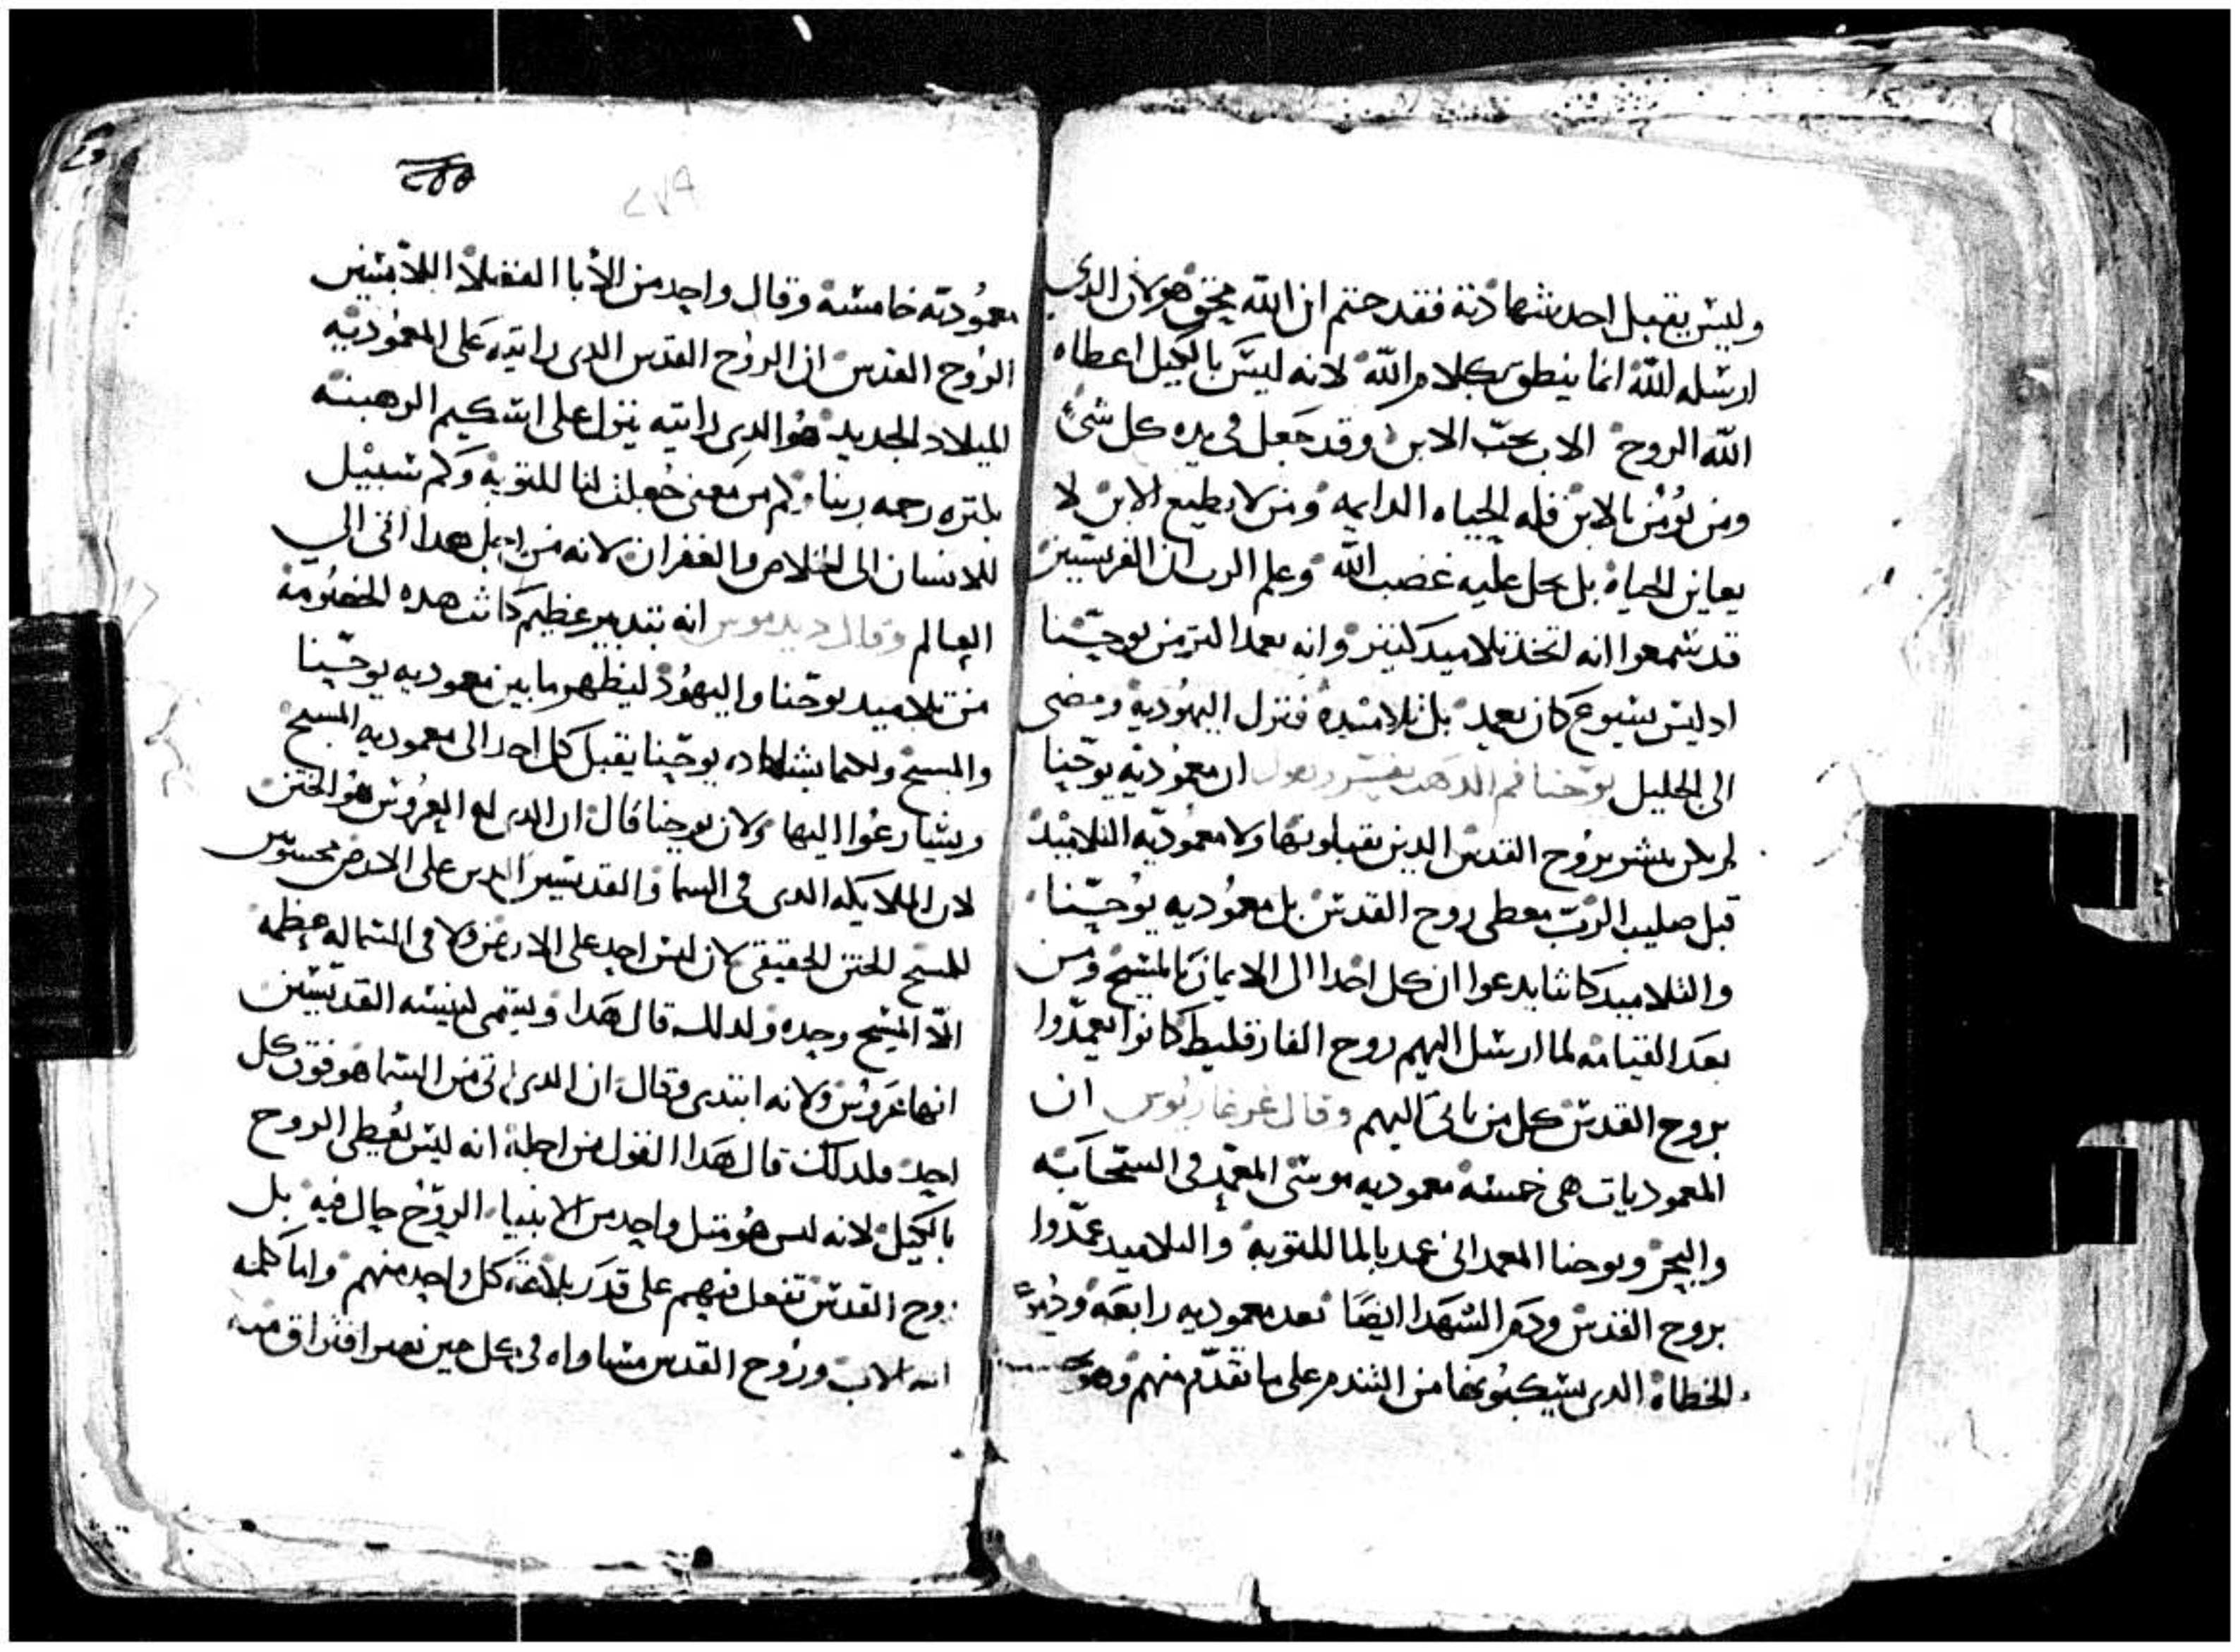 وليس يقبل احد شهادته فقد ختم ان الله محق هو لان الدي
ارسله الله انما ينطق بكلام الله لانه ليس بالكيل اعطاه
الله الروح الاب يحب الابن وقد جعل في يده كل شي
ومن يومن بالابن فله الحياه الدايمه ومن لا يطيع الابن لا
يعاين الحياه بل يحل عليه غضب الله وعلم الرب ان الفريسيين
قد سمعوا انه اتخذ تلاميد كثير وانه يعمد اكثر من يوحنا
اد ليس يسوع كان يعمد بل تلاميده فنزل اليهوديه ومضى
الى الجليل يوحنا فم الدهب يفسر ويقول ان معموديه يوحنا
لم يكن يبشر بروح القدس الدين يقبلونها ولا معموديه التلاميد
قبل صليب الرب معطى روح القدس بل معموديه يوحنا
والتلاميد كانتا يدعوا ان كل احدا الى الايمان بالمسيح ومن
بعد القيامه لما ارسل اليهم روح الفارقليط كانوا يعمدوا
بروح القدس كل من ياتى اليهم وقال غريغاريوس ان
المعموديات هي خمسه معموديه موسى المعمد في السحابه
والبحر ويوحنا المعمدانى عمد بالما للتوبه والتلاميد عمدوا
بروح القدس ودم الشهدا ايضا تعد معموديه رابعه ودموع
الخطاه الدى يسكبونها من التندم على ما تقدم منهم وهو
٢٥٥
٢٧٩
معموديه خامسه وقال واحد من الابا الفضلا اللابسين
الروح القدس ان الروح القدس الدى رايته على المعموديه
الميلاد الجديد هو الدى رايته ينزل على اسكيم الرهبنه
رحمه ربنا وكم من معنى جعلت لنا للتوبه وكم سبيل
للانسان الى الخلاص والغفران لانه من اجل هدا اتى الى
العالم وقال ديديموس انه بتدبير عظيم كانت هده الخصومه
من تلاميد يوحنا واليهود ليظهر ما بين معموديه يوحنا
والمسيح ولكيما بشهاده يوحنا يقبل كل احد الى معموديه المسيح
ويسارعوا اليها ولان يوحنا قال ان الدى له العروس هو الختن
لان الملايكه الدى في السما والقديسين الدين على الارض محسوس
للمسيح الختن الحقيقى لان ليس احد على الارض ولا في السما له عظمه
الا المسيح وحده ولدلك قال هدا ويسمى كنيسه القديسين
انها عروس ولانه ابتدى وقال ان الدى اتى من السما هو فوق كل
احد ولدلك قال هدا القول من اجله انه ليس يعطى الروح
بالكيل لانه ليس هو متل واحد من الانبيا الروح حال فيه بل
روح القدس تفعل فيهم على قدر بلاغه كل واحد منهم واما كلمه
الله الاب وروح القدس مساواه في كل حين بغير افتراق منه